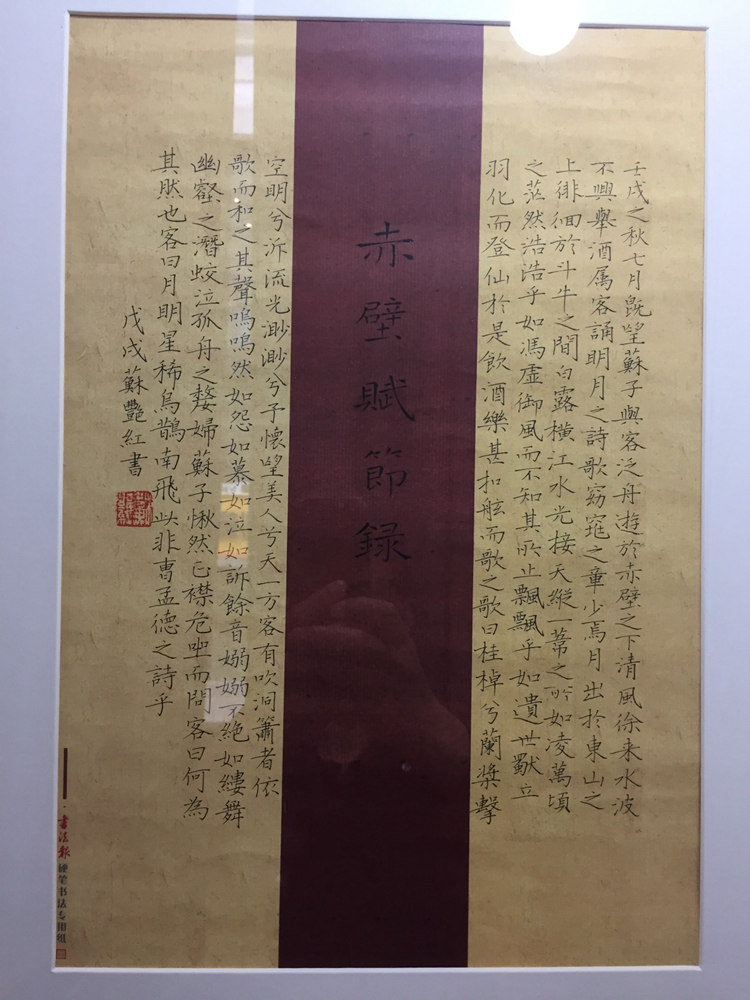 壬戌之秋七月既望蘇子與客泛舟遊於赤壁之下清風徐来水波
不興舉酒属客誦明月之詩歌窈窕之章少焉月出於東山之
上徘徊於斗牛之間白露橫江水光接天縱一葦之所如凌萬頃
之茫然浩浩乎如馮虛御風而不知其所止飄飄乎如遺世獨立
羽化而登仙於是飲酒樂甚扣舷而歌之歌曰桂棹兮蘭槳擊
赤壁賦節錄
空明兮泝流光渺渺兮予懷望美人兮天一方客有吹洞簫者依
歌而和之其聲嗚嗚然如怨如慕如泣如訴餘音嫋嫋不絶如縷舞
幽壑之潛蛟泣孤舟之嫠婦蘇子愀然正襟危坐而問客曰何為
其然也客曰月明星稀烏鵲南飛此非曹孟德之詩乎
戊戌蘇艷紅書
书法报 硬笔书法专用纸